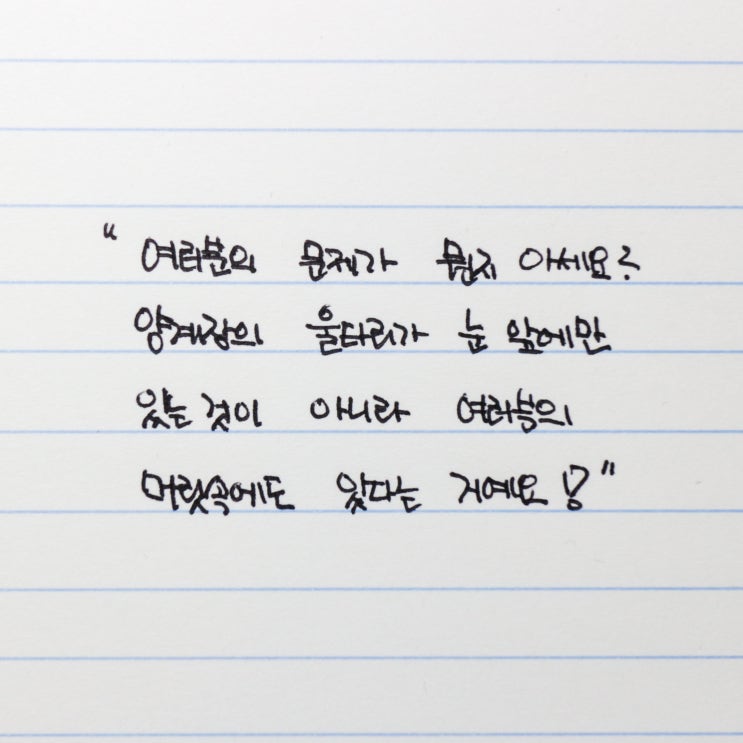 “ 여러분의 문제가 뭔지 아세요?
양계장의 울타리가 눈 앞에만
있는 것이 아니라 여러분의
머릿속에도 있다는 거예요!”